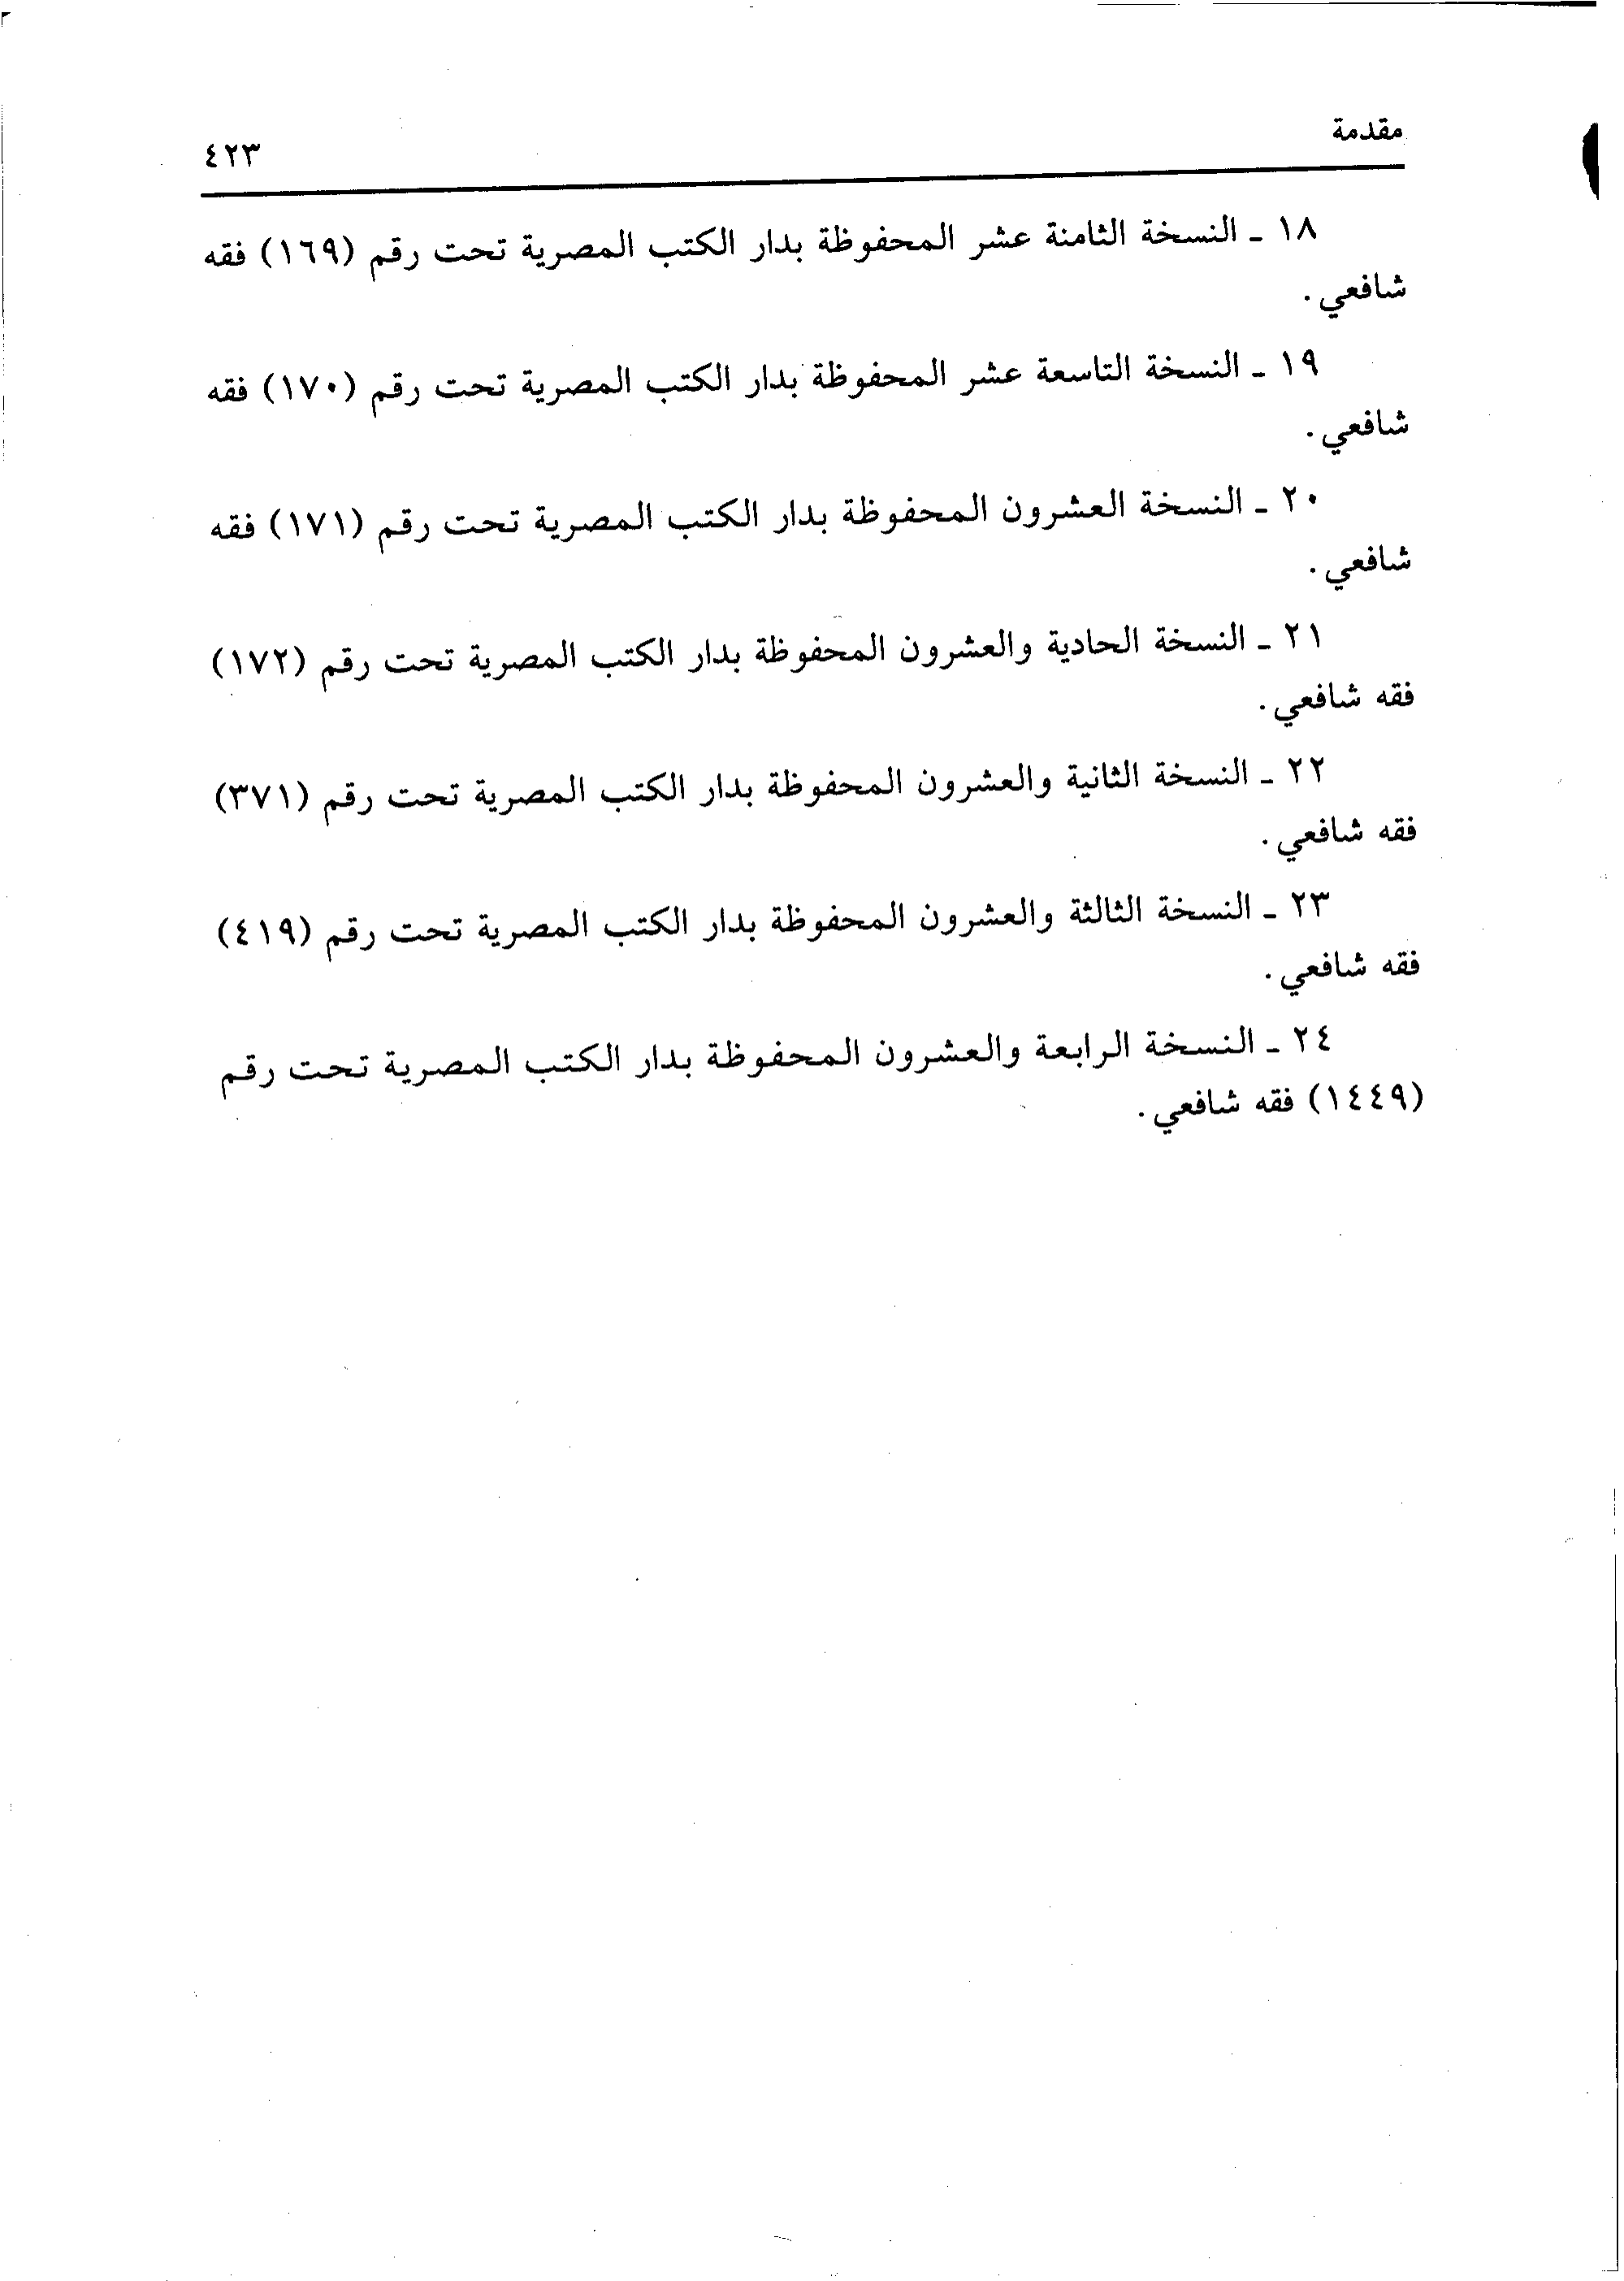 مقدمة
٤٢٣
١٨ ـ النسخة الثامنة عشر المحفوظة بدار الكتب المصرية تحت رقم (١٦٩) فقه
شافعي.
١٩ ـ النسخة التاسعة عشر المحفوظة بدار الكتب المصرية تحت رقم (١٧٠) فقه
شافعي.
٢٠ ـ النسخة العشرون المحفوظة بدار الكتب المصرية تحت رقم (١٧١) فقه
شافعي.
٢١ ـ النسخة الحادية والعشرون المحفوظة بدار الكتب المصرية تحت رقم (١٧٢)
فقه شافعي.
٢٢ ـ النسخة الثانية والعشرون المحفوظة بدار الكتب المصرية تحت رقم (٣٧١)
فقه شافعي.
٢٣ ـ النسخة الثالثة والعشرون المحفوظة بدار الكتب المصرية تحت رقم (٤١٩)
فقه شافعي.
٢٤ ـ النسخة الرابعة والعشرون المحفوظة بدار الكتب المصرية تحت رقم
(١٤٤٩) فقه شافعي.